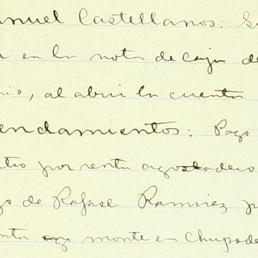 nuel Castellanos: S
en la nota de caja de
rio, al abrir la cuenta
endamientos: Pago
tio por renta agostadero
go de Rafael Ramirez p
nta monte en Chupade